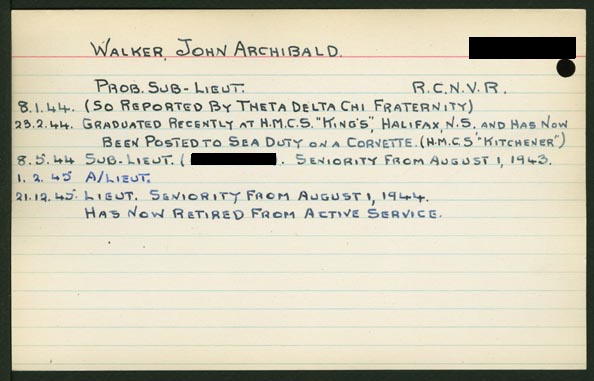 WALKER, JOHN ARCHIBALD.
PROB. SUB-LIEUT. R.C.N.V.R.
8.1.44. (SO REPORTED BY THETA DELTA CHI FRATERNITY)
23.2.44. GRADUATED RECENTLY AT H.M.C.S. "KING'S", HALIFAX, N.S. AND HAS NOW
BEEN POSTED TO SEA DUTY ON A CORVETTE. (H.M.C.S "KITCHENER")
8.5.44 SUB-LIEUT. ( ). SENIORITY FROM AUGUST 1, 1943.
1.2.45 A/LIEUT.
21.12.45. LIEUT. SENIORITY FROM AUGUST 1, 1944.
HAS NOW RETIRED FROM ACTIVE SERVICE.